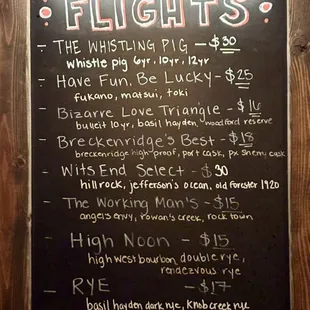 FLIGHTS
- THE WHISTLING PIG - $30
whistle pig 6yr, 10yr, 12yr
- Have Fun, Be Lucky - $25
fukano, matsui, toki
- Bizarre Love Triangle - $16
bulleit 10yr, basil hayden, woodford reserve
- Breckenridge's Best - $18
breckenridge high-proof, port cask, px sherry cask
- Wits End Select - $30
hillrock, jefferson's ocean, old forester 1920
- The Working Man's - $15
angels envy, rowan's creek, rock town
- High Noon - $15
high west bourbon, double rye,
rendezvous rye
- RYE - $17
basil hayden dark rye, knob creek rye